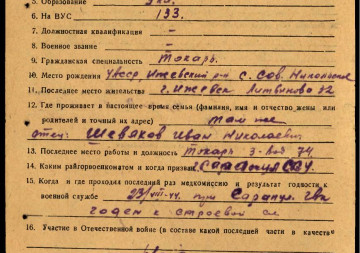 5. Образование
6. На ВУС 133.
7. Должностная квалификация –
8. Военное звание –
9. Гражданская специальность Токарь
10. Место рождения Уаср. Ижевский р-н с. Сов. Никольское
11. Последнее место жительства г. Ижевск Литвинова 72
12. Где проживает в настоящее время семья (фамилия, имя и отчество жены или
родителей и точный их адрес) там же
отец: Шевяков Иван Николаевич
13. Последнее место работы и должность Токарь 3-вод 74
14. Каким райгорвоенкоматом и когда призван Сарапул
15. Когда и где проходил последний раз медкомиссию и результат годности к
военной службе 23/VIII-44. при Сарапул. гвк
годен к строевой сл.
16. Участие в Отечественной войне (в составе какой последней части в качеств